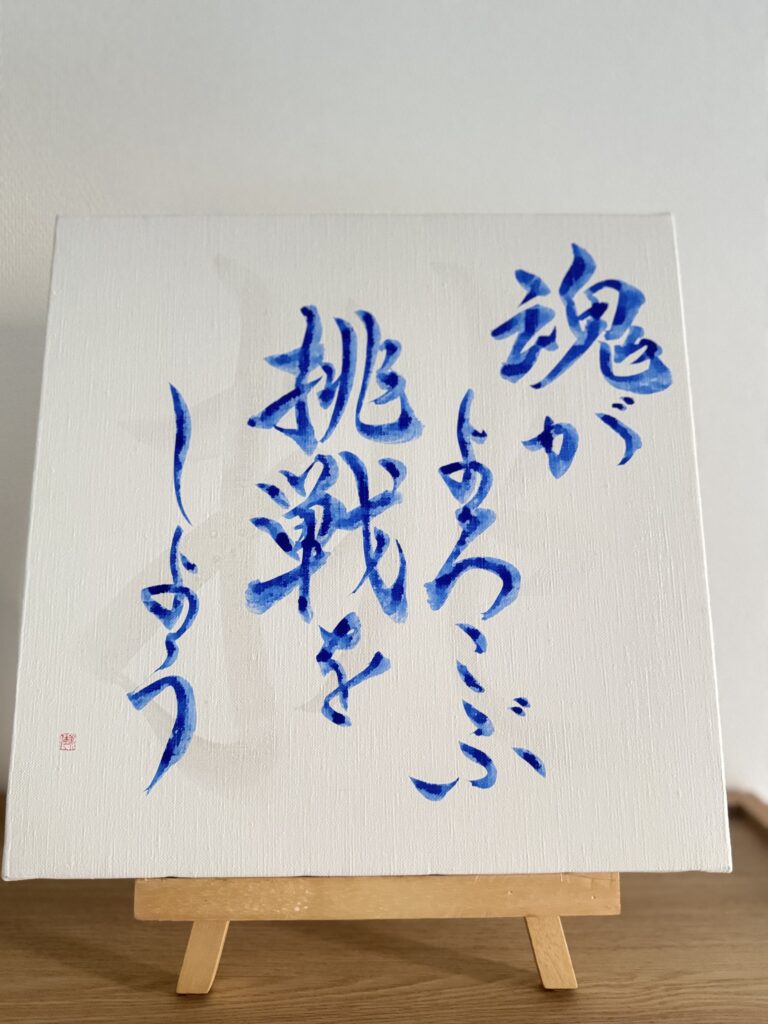 魂が
よろこぶ
挑戦を
しよう